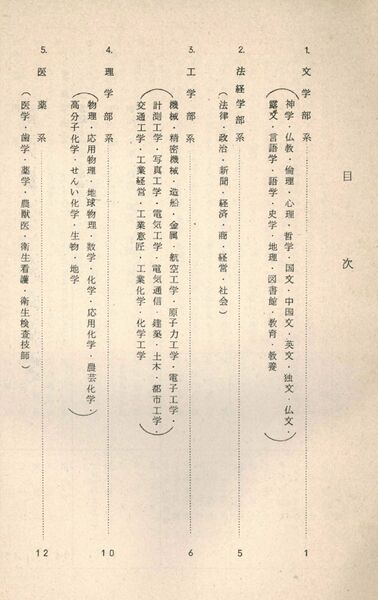 目次
1. 文学部系……1
神学・仏教・倫理・心理・哲学・国文・中国文・英文・独文・仏文・
露文・言語学・語学・史学・地理・図書館・教育・教養
2. 法経学部系……5
(法律・政治・新聞・経済・商・経営・社会)
3. 工学部系……6
機械・精密機械・造船・金属・航空工学・原子力工学・電子工学・
計測工学・写真工学・電気工学・電気通信・建築・土木・都市工学・
交通工学・工業経営・工業意匠・工業化学・化学工学
4. 理学部系……10
物理・応用物理・地球物理・数学・化学・応用化学・農芸化学・
高分子化学・せんい化学・生物・地学
5. 医薬系……12
(医学・歯学・薬学・農獣医・衛生看護・衛生検査技師)